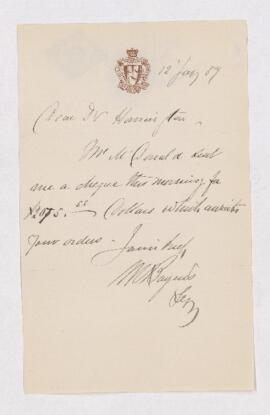 12 Jan 87
Dear Dr Harrington
Mr McDonald sent
me a cheque this morning for
Dollars which awaits
Your orders.